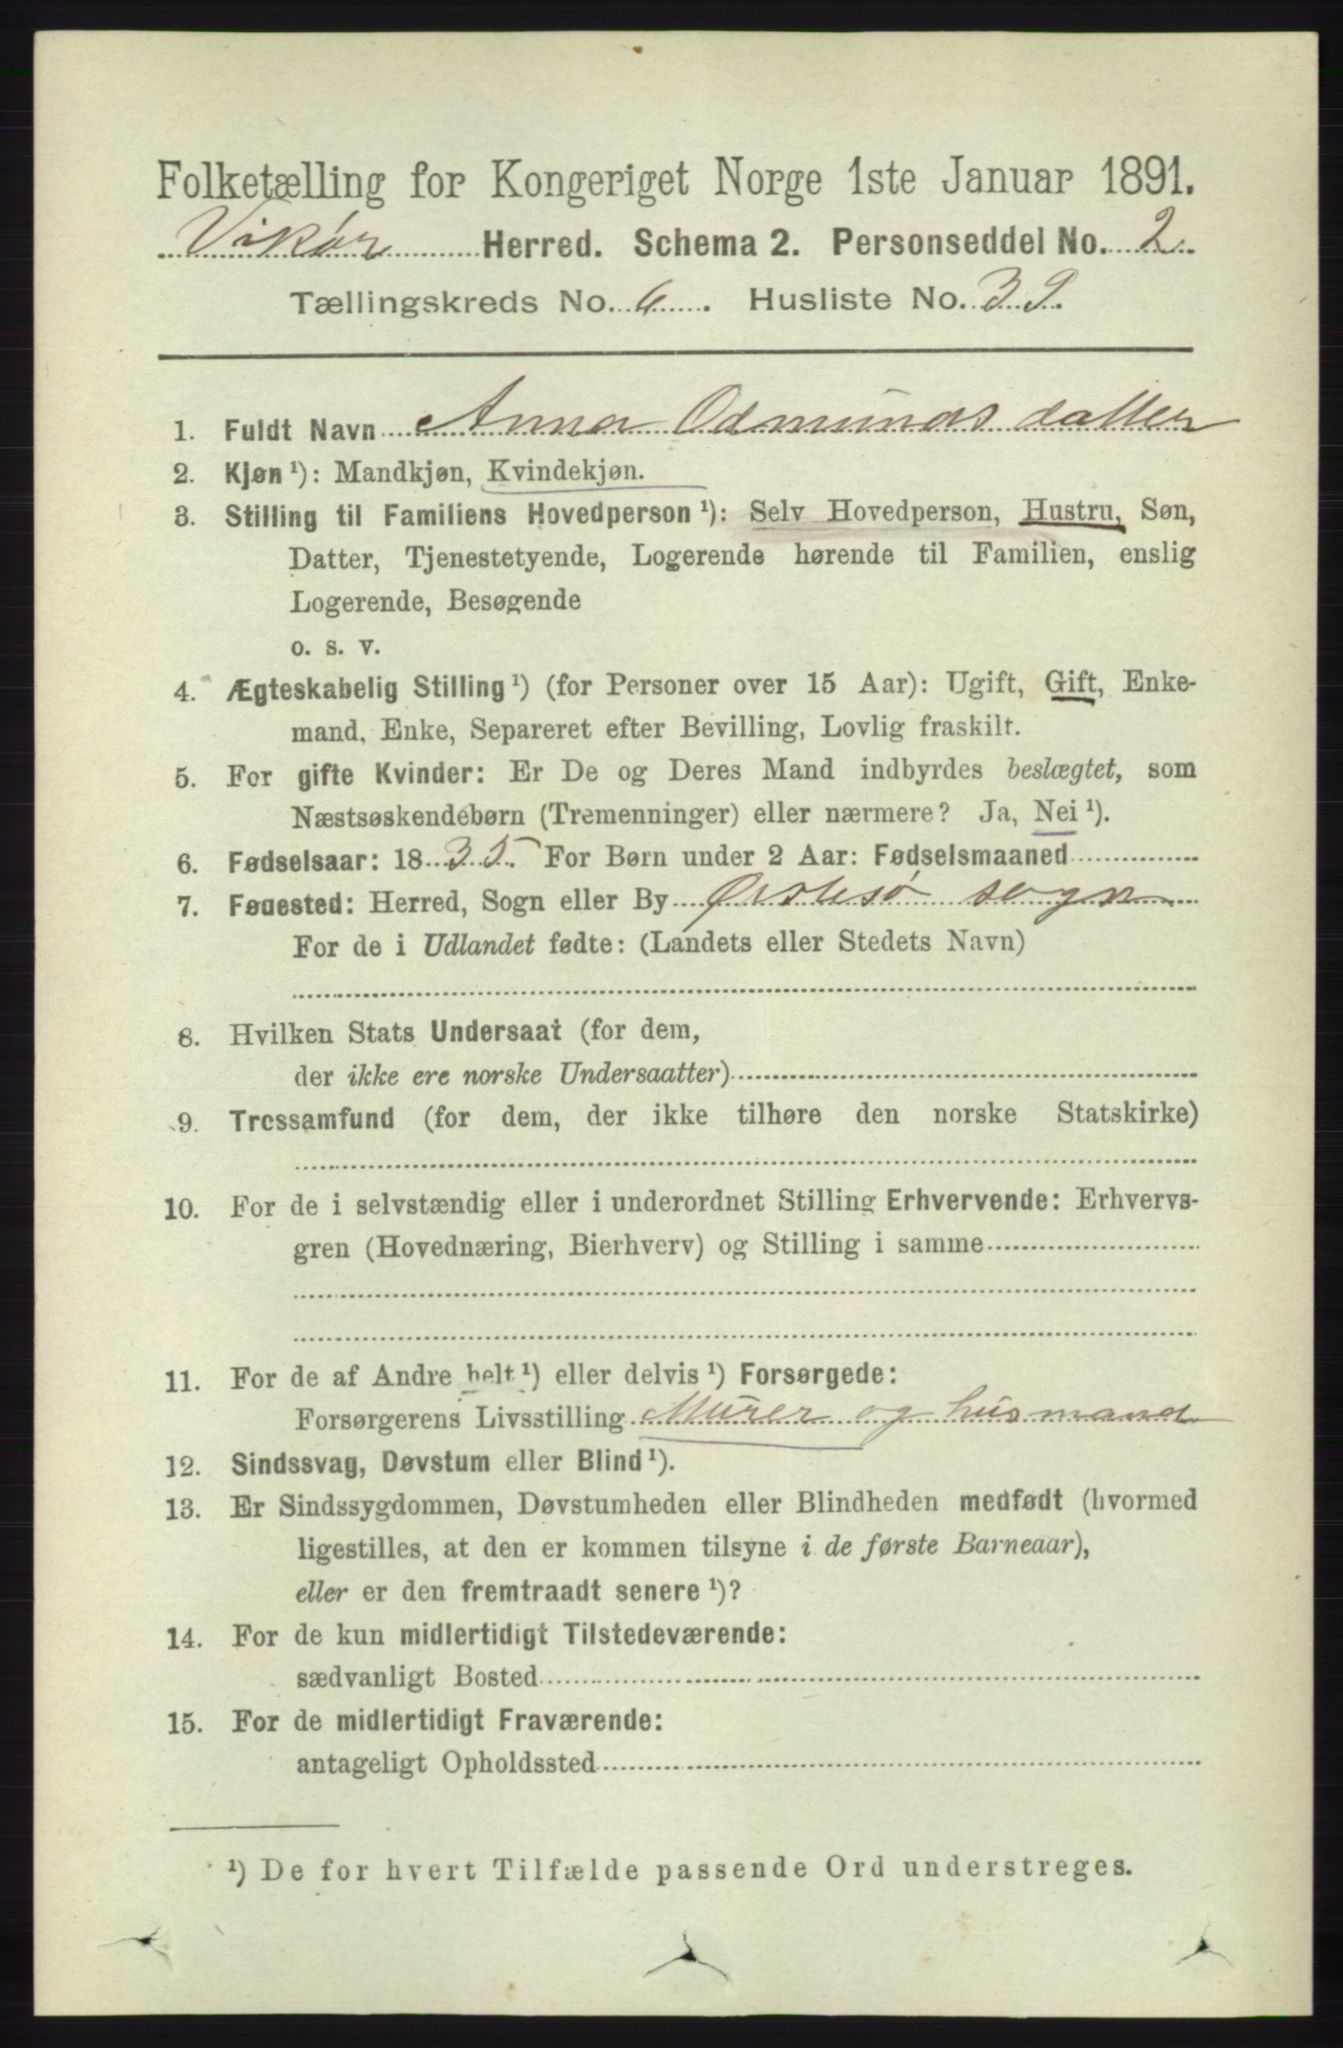 Folketælling for Kongeriget Norge 1ste Januar 1891.
Vikør Herred. Schema 2. Personseddel No. 2.
Tællingskreds No. 6. Husliste No. 39.
1. Fuldt Navn Anna Odmundsdatter
2. Kjøn ¹): Mandkjøn, Kvindekjøn.
3. Stilling til Familiens Hovedperson ¹): Selv Hovedperson, Hustru, Søn,
Datter, Tjenestetyende, Logerende hørende til Familien, enslig
Logerende, Besøgende
o. s. v.
4. Ægteskabelig Stilling ¹) (for Personer over 15 Aar): Ugift, Gift, Enke-
mand, Enke, Separeret efter Bevilling, Lovlig fraskilt.
5. For gifte Kvinder: Er De og Deres Mand indbyrdes beslægtet, som
Næstsøskendebørn (Tremenninger) eller nærmere? Ja, Nei ¹).
6. Fødselsaar: 1835. For Børn under 2 Aar: Fødselsmaaned
7. Føuested: Herred, Sogn eller By Østesø sogn
For de i Udlandet fødte: (Landets eller Stedets Navn)
8. Hvilken Stats Undersaat (for dem,
der ikke ere norske Undersaatter)
9. Trossamfund (for dem, der ikke tilhøre den norske Statskirke)
10. For de i selvstændig eller i underordnet Stilling Erhvervende: Erhvervs-
gren (Hovednæring, Bierhverv) og Stilling i samme
11. For de af Andre helt ¹) eller delvis ¹) Forsørgede:
Forsørgerens Livsstilling Murer og husmand
12. Sindssvag, Døvstum eller Blind ¹).
13. Er Sindssygdommen, Døvstumheden eller Blindheden medfødt (hvormed
ligestilles, at den er kommen tilsyne i de første Barneaar),
eller er den fremtraadt senere ¹)?
14. For de kun midlertidigt Tilstedeværende:
sædvanligt Bosted
15. For de midlertidigt Fraværende:
antageligt Opholdssted
¹) De for hvert Tilfælde passende Ord understreges.